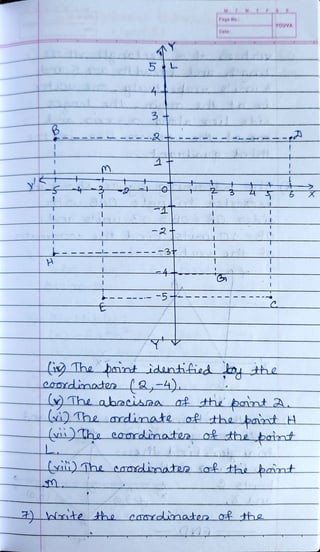 M T W T F S S
Page No.:
Date:
YOUVA
Y
5 L
4
3
B 2 D
1
M
X' -5 -4 -3 -2 -1 0 2 3 4 5 6 X
-1
-2
H -3
-4 G
E -5 C
Y'
(iv) The point identified by the
coordinates (2,-4).
(v) The abscissa of the point D.
(vi) The ordinate of the point H
(vii) The coordinates of the point
L.
(viii) The coordinates of the point
M.
7) Write the coordinates of the